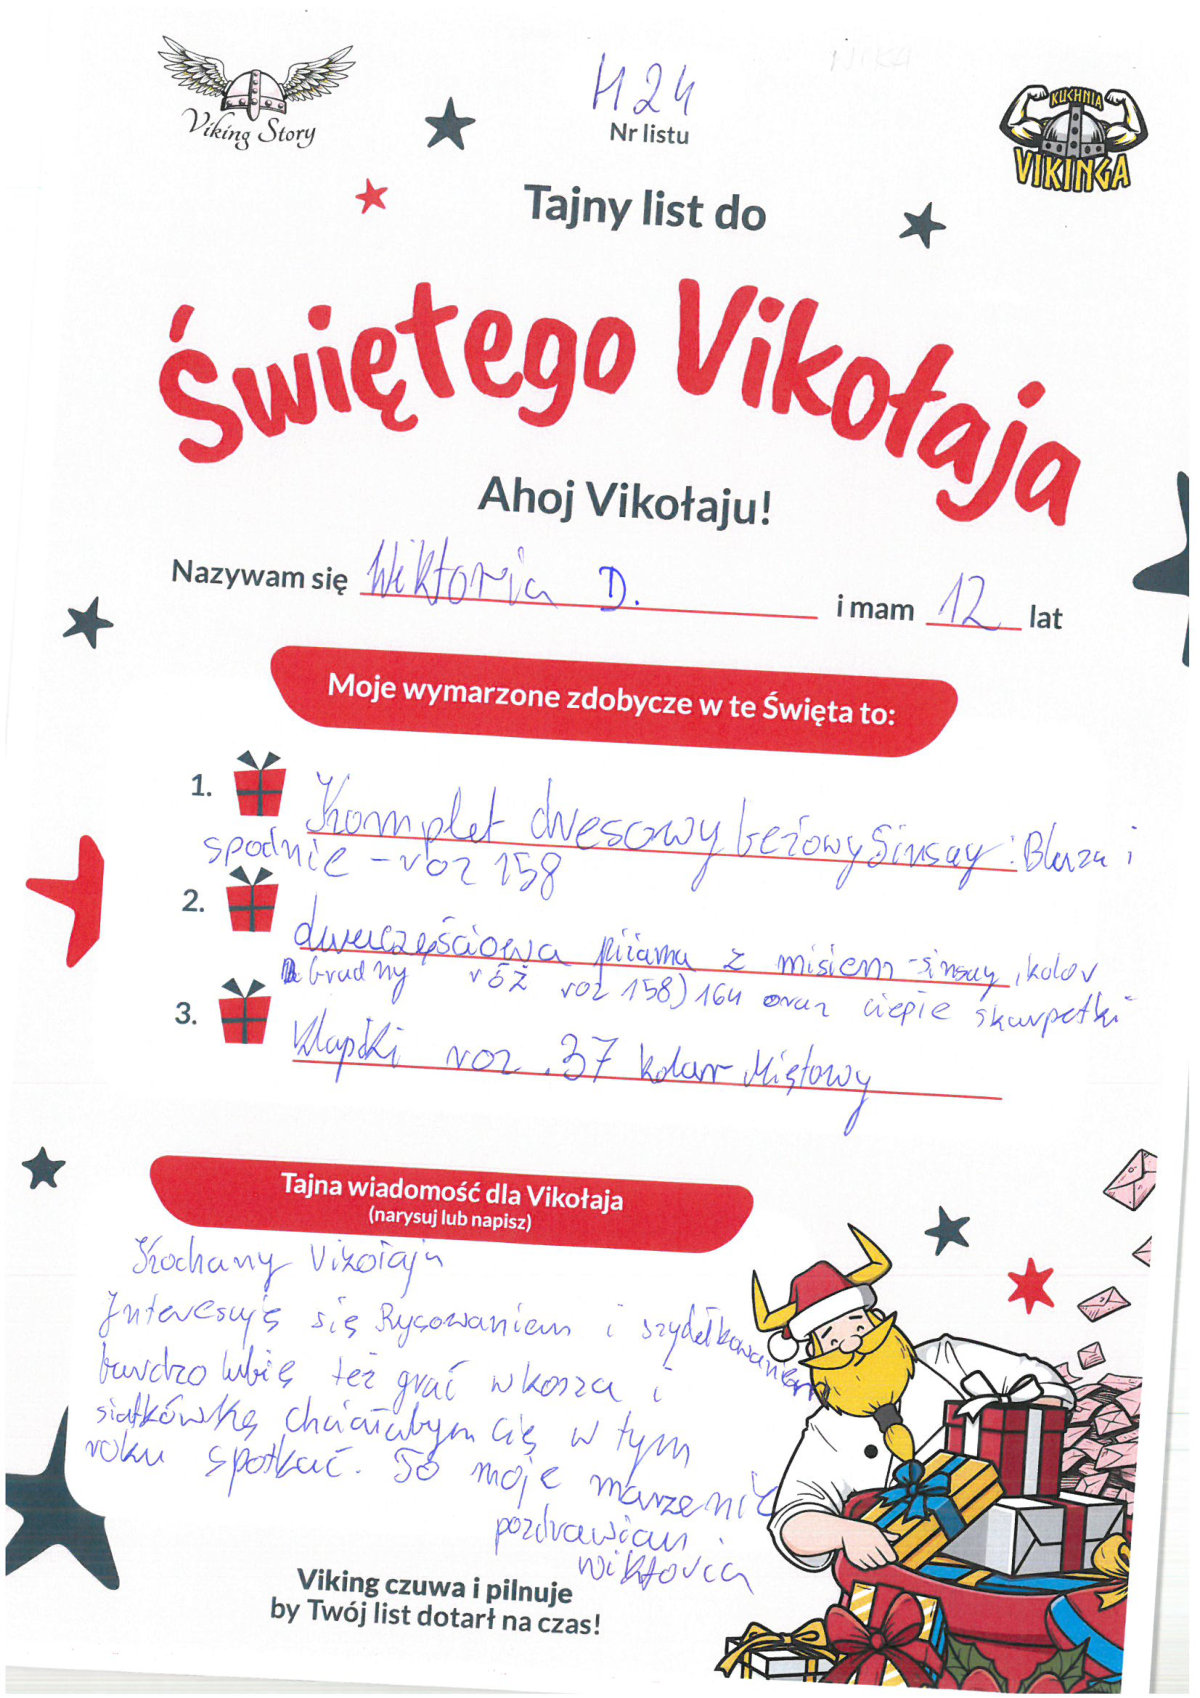 Viking Story
H24
Nr listu
KUCHNIA
VIKINGA
Tajny list do
Świętego Vikołaja
Ahoj Vikołaju!
Nazywam się Wiktoria D. i mam 12 lat
Moje wymarzone zdobycze w te Święta to:
1. Komplet dresowy beżowy Sinsay : Bluza i
spodnie - roz 158
2. dwuczęściowa piżama z misiem - sinsay, kolor
brudny róż roz 158) 164 oraz ciepłe skarpetki
3. Klapki roz. 37 kolor Miętowy
Tajna wiadomość dla Vikołaja
(narysuj lub napisz)
Kochany Vikołaju
Interesuję się Rysowaniem i szydełkowaniem
bardzo lubię też grać w kosza i
siatkówkę chciałabym cię w tym
roku spotkać. To moje marzenie
pozdrawiam.
wiktoria
Viking czuwa i pilnuje
by Twój list dotarł na czas!